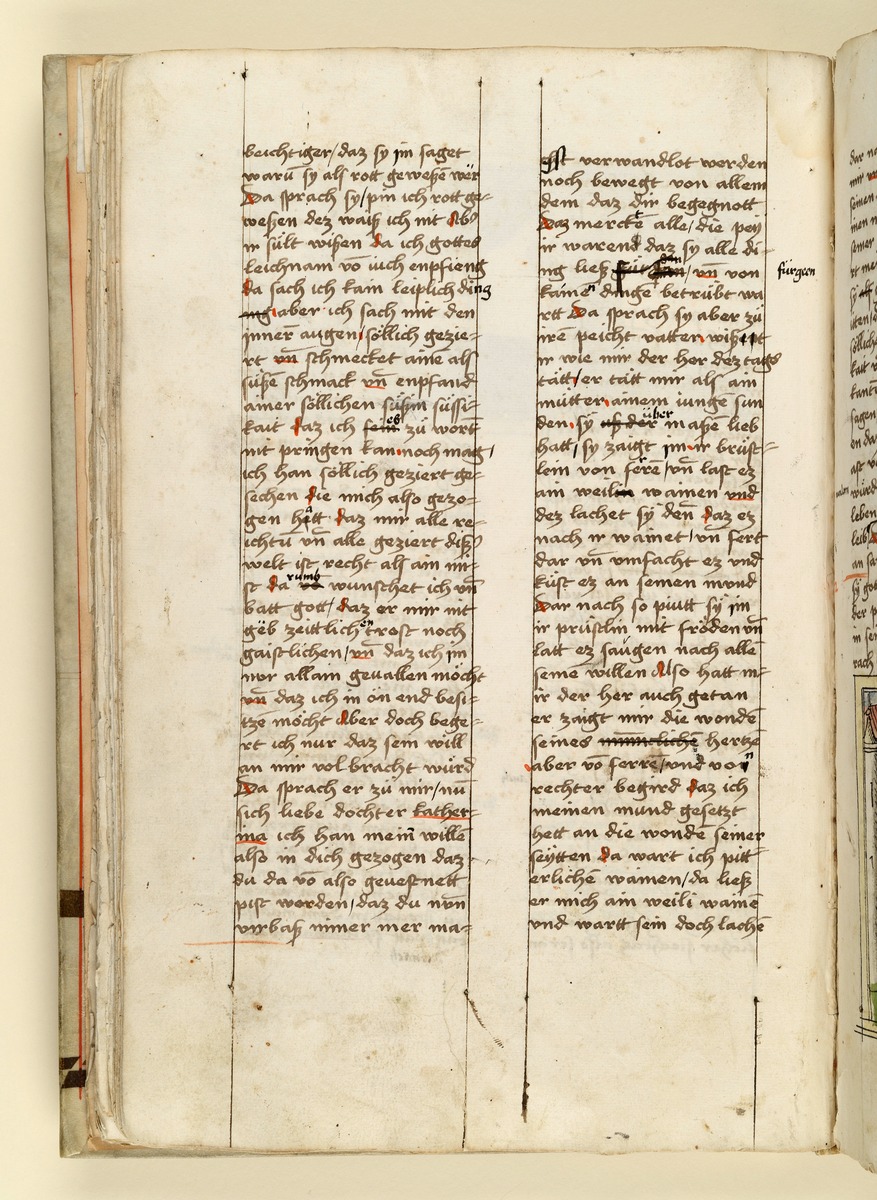 beichtiger / daz sy jm saget
warū sy als rott geweßē wer
Da sprach sy / pin ich rott ge-
weßen dez waiß ich nit Ab͛
ir sült wißen da ich gottes
leichnam vō iuch enpfieng
da sach ich kain leiplich ding
aber ich sach mit den
jnnerē augen söllich gezie-
rt vn̄ schmecket aine als
süßē schmack vn̄ enpfand
ainer söllichen süßin süssi-
kait daz ich eß zu wort
nit pringen kan noch mag /
ich han söllich geziert ge-
sechen die mich also gezo-
gen hatt daz mir alle re-
ichtū vn̄ alle geziert diß͛
welt ist recht als ain mi-
st da rumb wunschet ich vn̄
batt gott / daz er mir nit
geb zeittlichen trost noch
gaistlichen / vn̄ daz ich jm
nor allain geuallen möcht
vn̄ daz ich in ön end besi-
tzē möcht Aber doch bege-
rt ich nur daz sein will
an mir vol bracht würd
Da sprach er zü mir / nū
sich liebe dochter kather-
ina ich han mein willē
also in dich gezogen daz
du da vō also geuestnett
pist worden / daz du nun
virbaß nimer mer ma-
gst verwandlot werden
noch bewegt von allem
dem daz dir begegnott
Daz mercktē alle / die pey
ir warend daz sy alle di-
ng ließ / vn̄ von
kainē dinge betrübt wa
rtt Da sprach sy aber zü
irē peicht vatten wißept
ir wie mir der her dez tags
tätt / er tätt mir als ain
mütter ainem iunge sun
den sy über maßen lieb
hatt / sy zaigt jm ir brüst-
lein von ferrē / vn̄ last ez
ain weil wainen vnd
dez lachet sy den̄ daz ez
nach ir wainet / vn̄ fert
dar vn̄ vmfacht ez vnd
küst ez an seinen mund
Dar nach so piutt sy jm
ir prüstlin mit fröden vn̄
latt ez saugen nach allē
seinē willen Also hatt m-
ir der her auch getan
er zaigt mir die wondē
seines hertzē
aber vō ferrē / vnd von
rechter begird daz ich
meinen mund gesetzt
hett an die wondē seiner
seÿtten da wart ich pitt
erlichen wainen / da ließ
er mich ain weili wainē
vnd wartt sein doch lachē
fürgeen